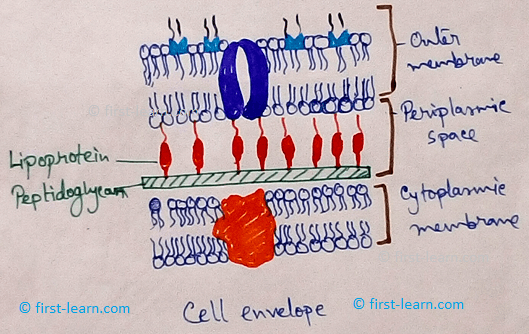 Outer
membrane
Periplasmic
space
Lipoprotein
Peptidoglycan
Cytoplasmic
membrane
© first-learn.com
Cell envelope
© first-learn.com